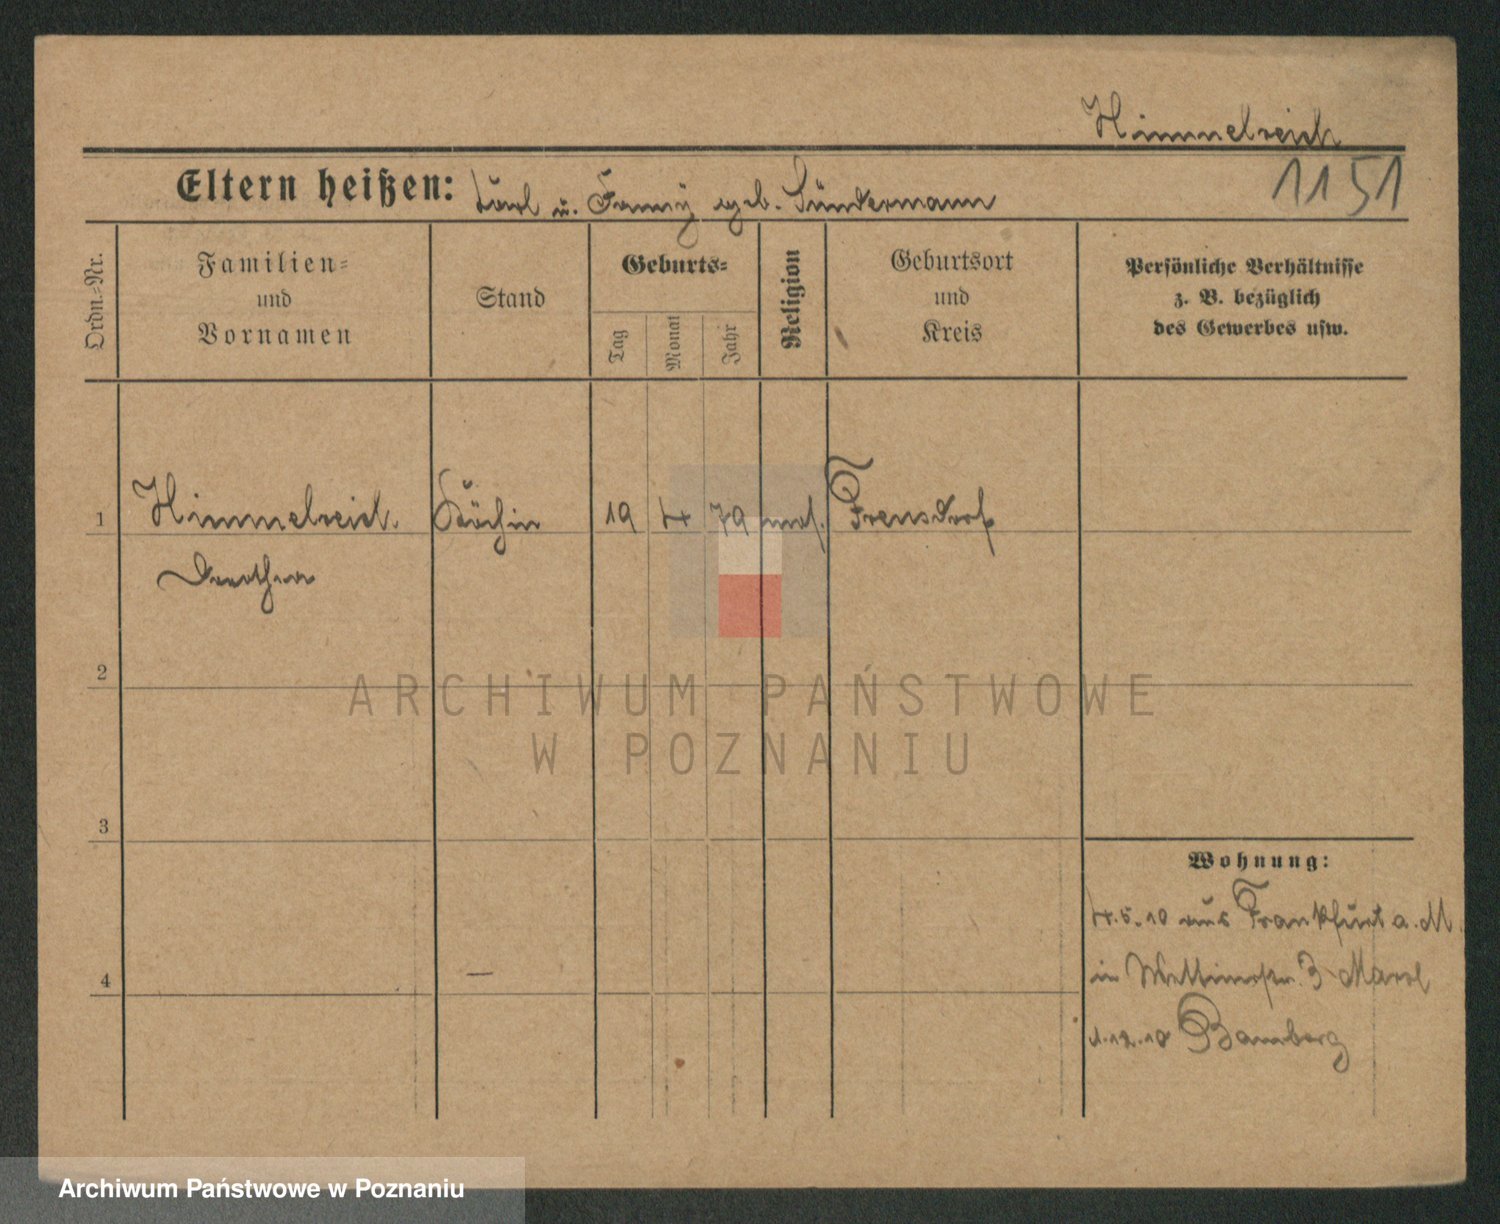 Himmelreich
Eltern heißen: Karl u. Fanny geb. Sündermann
1151
Ordn.-Nr.
Familien-
und
Vornamen
Stand
Geburts-
Tag
Monat
Jahr
Religion
Geburtsort
und
Kreis
Persönliche Verhältnisse
z. B. bezüglich
des Gewerbes usw.
1
Himmelreich
Köchin
19
4
79
mos.
Frensdorf
Dorothea
2
ARCHIWUM PAŃSTWOWE
W POZNANIU
3
Wohnung:
4.5.10 aus Frankfurt a. M.
in 3
4
1.12.10 Bamberg
Archiwum Państwowe w Poznaniu